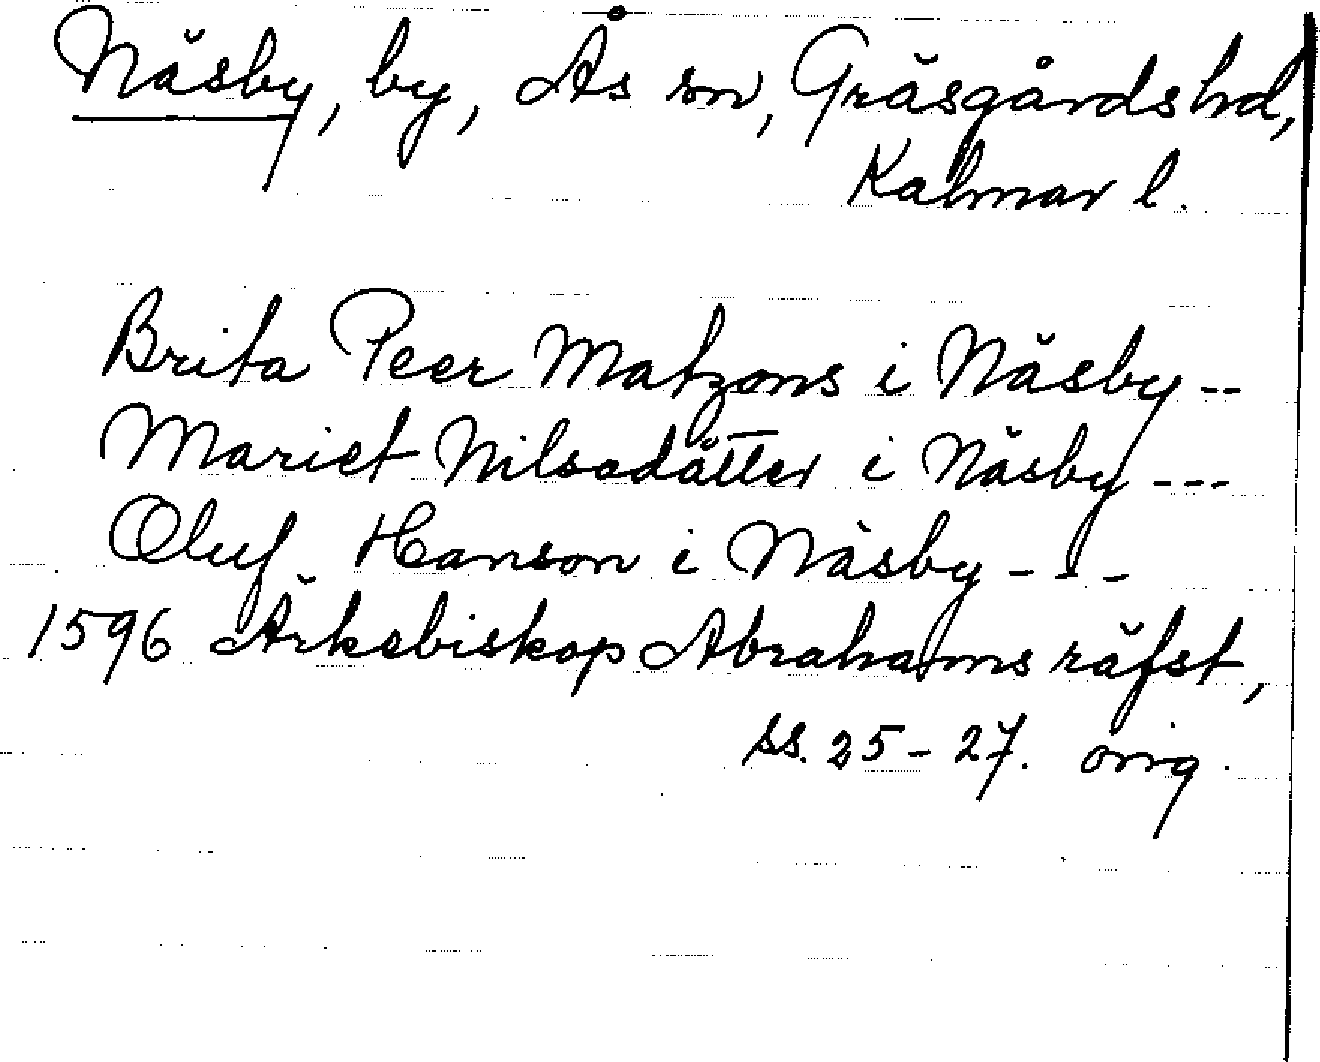 Näsby, by, Ås sn, Gräsgårds hd,
Kalmar l.
Brita Peer Matzons i Näsby --
Mariet Nilsadåtter i Näsby ---
Oluf Hanson i Näsby - - -
1596 Ärkebiskop Abrahams räfst,
ss. 25 - 27. orig.